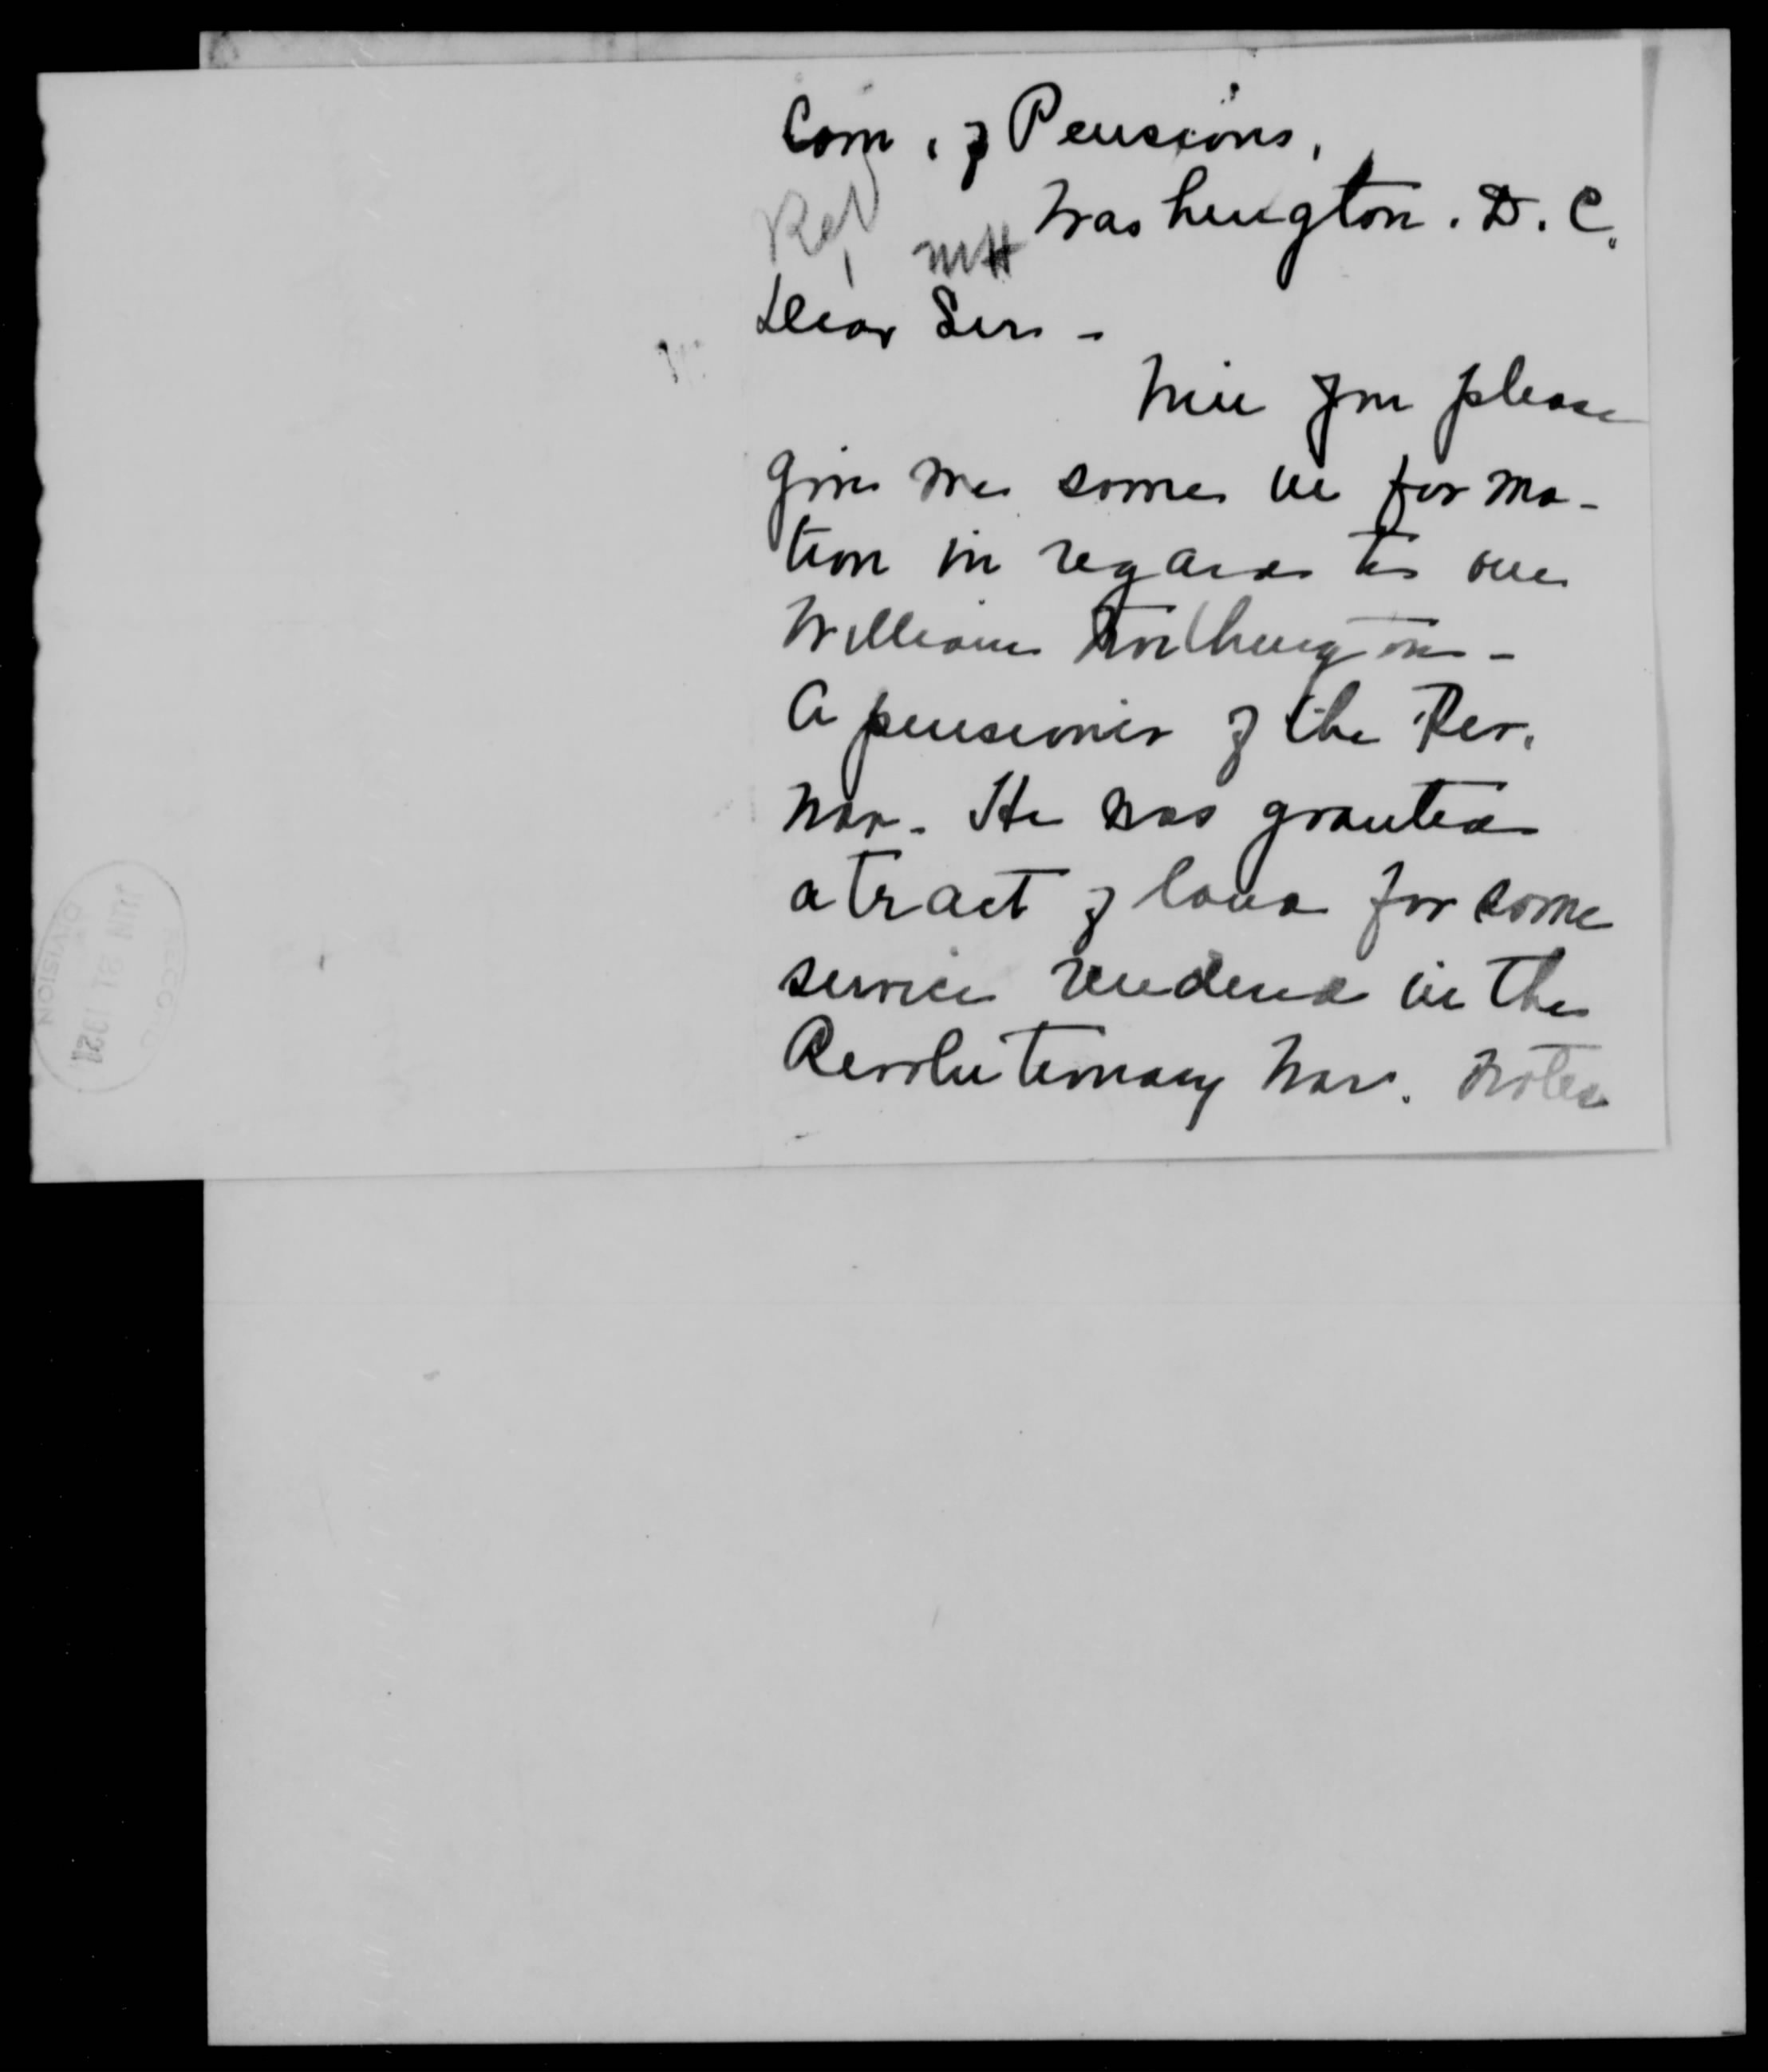 Com. of Pensions,
Washington. D. C.
Rej MH
Dear Sir -
Will you please
give me some informa-
tion in regard to one
William Worthington -
A pensioner of the Rev.
War. He was granted
a tract of land for some
service rendered in the
Revolutionary War.
RECORD
JUN 21 1921
DIVISION